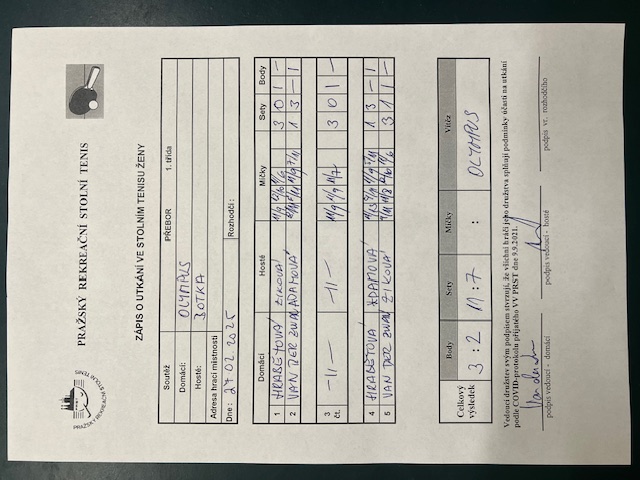 PRAŽSKÝ REKREAČNÍ STOLNÍ TENIS
ZÁPIS O UTKÁNÍ VE STOLNÍM TENISU ŽENY
Soutěž PŘEBOR 1. třída
Domácí: OLYMPUS
Hosté: BOTKA
Adresa hrací místnosti
Dne: 27 02 2025 Rozhodčí:
Domácí Hosté Míčky Sety Body
1 HRABĚTOVÁ ZIKOVÁ 3 0 1 –
2 VAN DER ADAMOVÁ 1 3 – 1
3 čt. –11– –11– 3 0 1 –
4 HRABĚTOVÁ ADAMOVÁ 1 3 – 1
5 VAN DER ZIKOVÁ 3 1 1 –
Celkový výsledek Body Sety Míčky Vítěz
3 : 2 11 : 7 : OLYMPUS
Vedoucí družstev svým podpisem stvrzují, že všichni hráči jeho družstva splňají podmínky účasti na utkání
podle COVID-protokolu přijatého VV PRST dne 9.9.2021.
podpis vedoucí - domácí podpis vedoucí - hosté podpis vr. rozhodčího